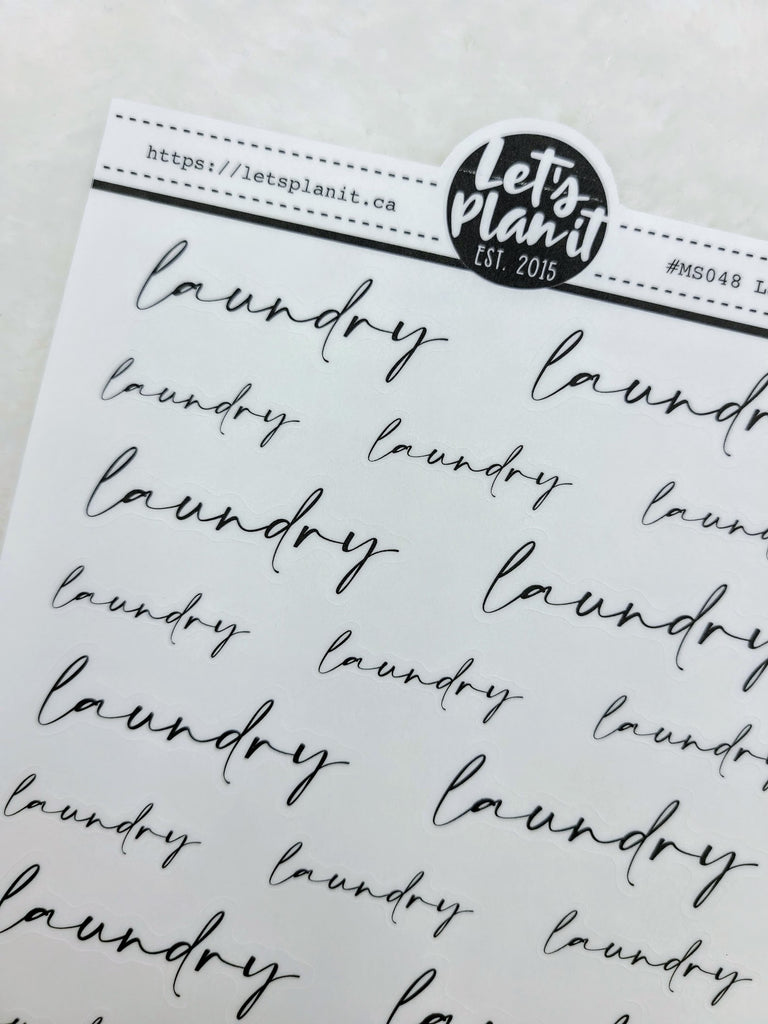 https://letsplanit.ca
Let's
Plan it
EST. 2015
#MS048
laundry laundry
laundry laundry laundry
laundry laundry
laundry laundry laundry
laundry laundry
laundry laundry laundry
laundry